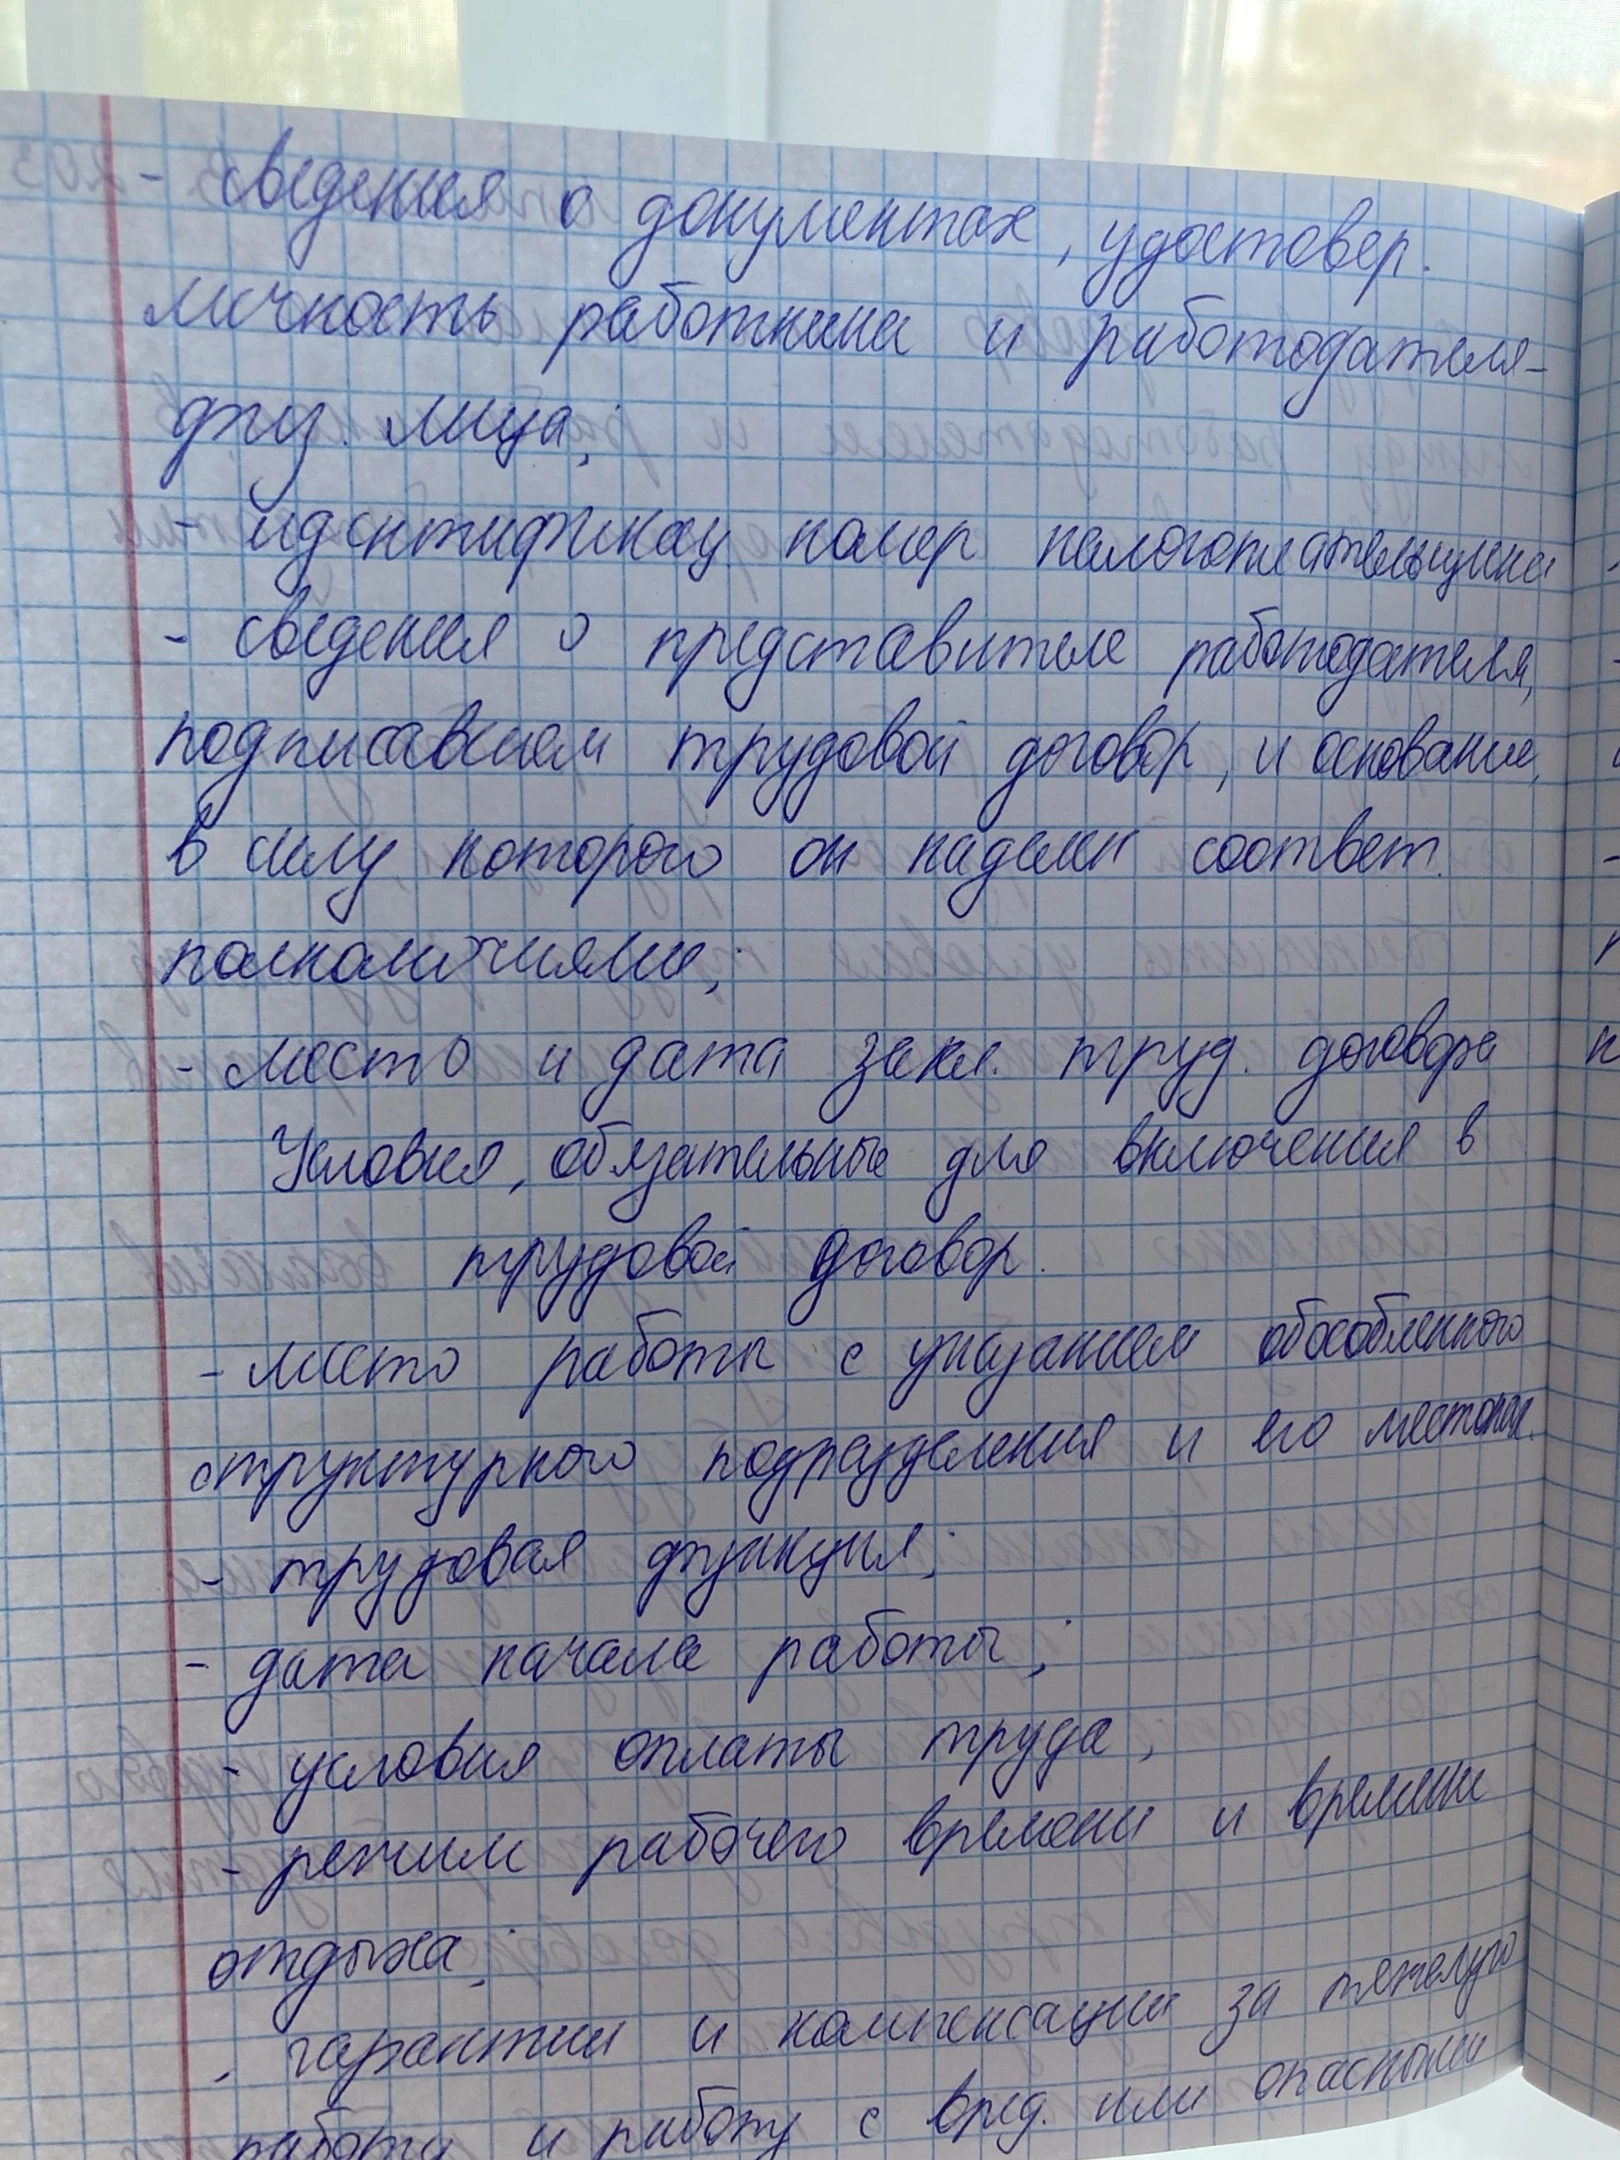 - сведения о документах, удостовер.
личность работника и работодателя-
физ. лица;
- идентификац. номер налогоплательщика
- сведения о представителе работодателя,
подписавшем трудовой договор, и основание,
в силу которого он наделен соответ.
полномочиями;
- место и дата закл. труд. договора
Условия, обязательные для включения в
трудовой договор.
- место работы с указанием обособленного
структурного подразделения и его местопол.
- трудовая функция;
- дата начала работы;
- условия оплаты труда;
- режим рабочего времени и времени
отдыха;
- гарантии и компенсации за тяжелую
работу и работу с вред. или опасными